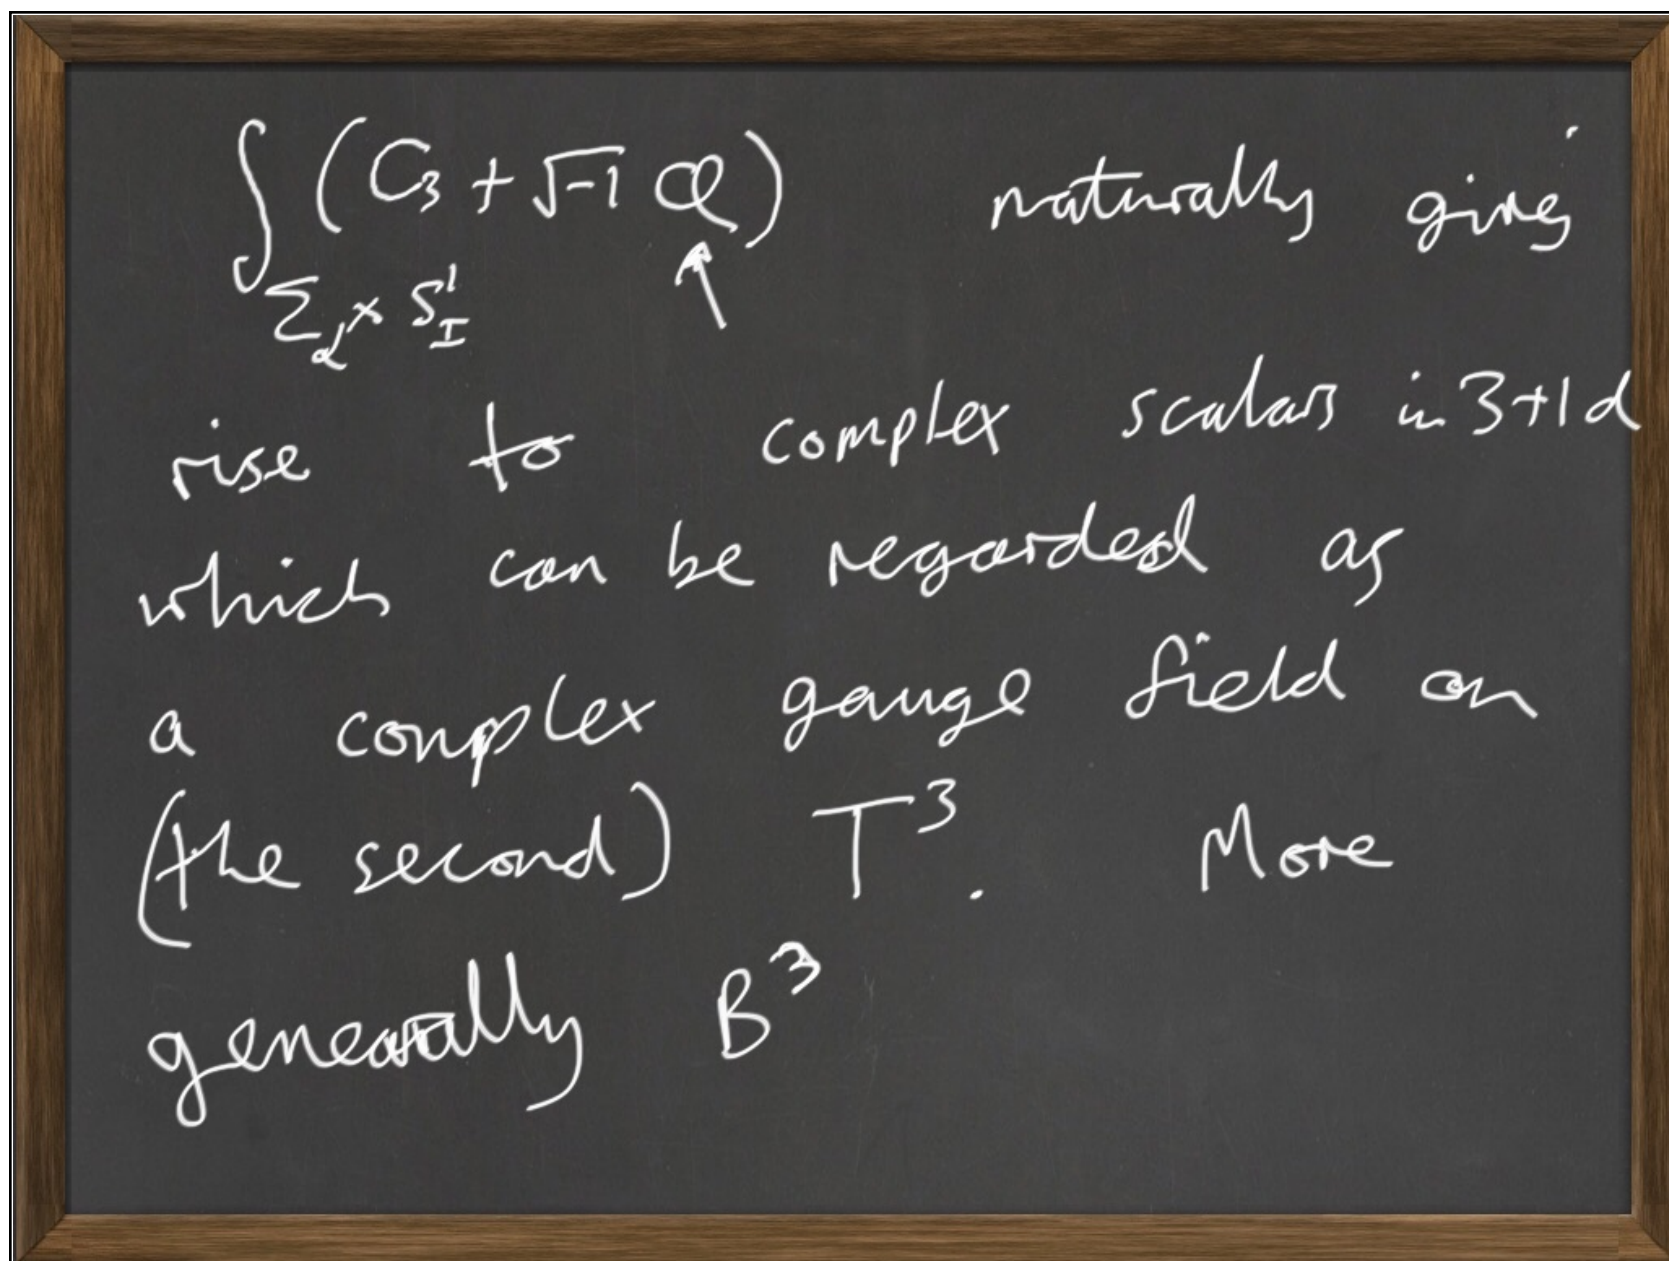 ∫_{Σ_α × S^1_I} (C_3 + √-1 φ) naturally gives
rise to complex scalars in 3+1d
which can be regarded as
a complex gauge field on
(the second) T^3. More
generally B^3